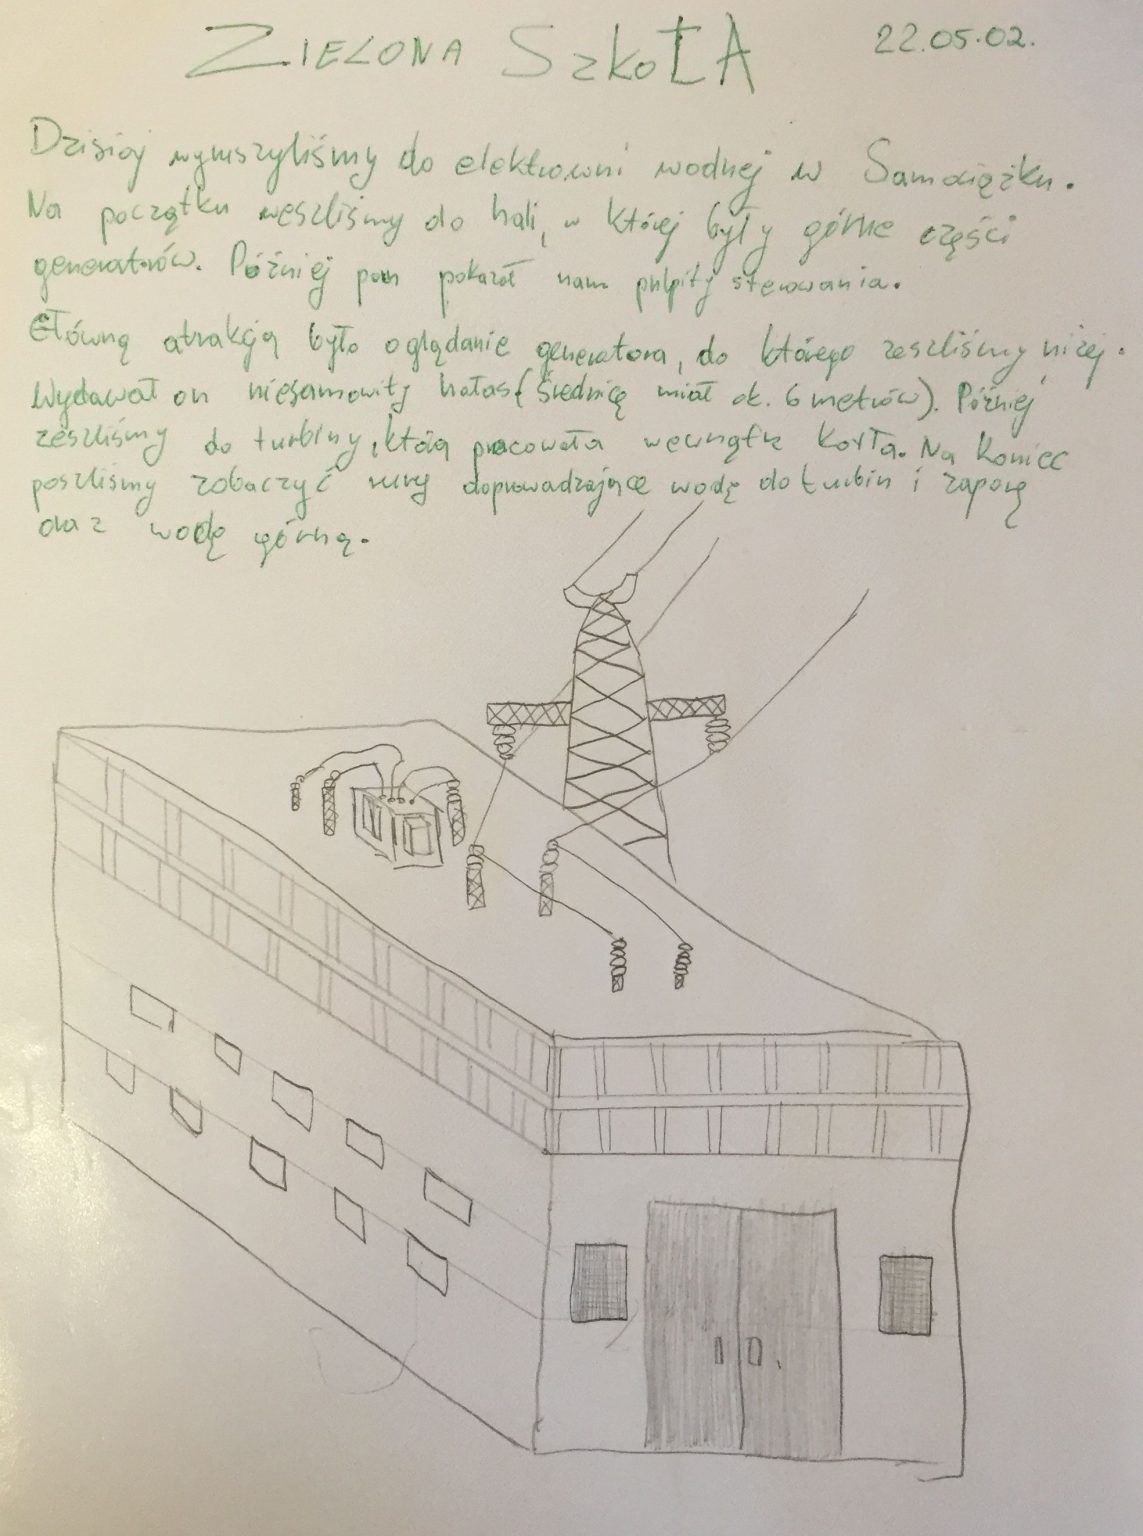 ZIELONA SZkoŁA 22.05.02.
Dzisiaj wyruszyliśmy do elektrowni wodnej w Samociążku.
Na początku weszliśmy do hali, w której były górne części
generatorów. Później pan pokazał nam pulpity sterowania.
Główną atrakcją było oglądanie generatora, do którego zeszliśmy niżej.
Wydawał on niesamowity hałas (średnicę miał ok. 6 metrów). Później
zeszliśmy do turbiny, która pracowała wewnątrz kotła. Na koniec
poszliśmy zobaczyć rury doprowadzające wodę do turbin i zaporę
oraz wodę górną.